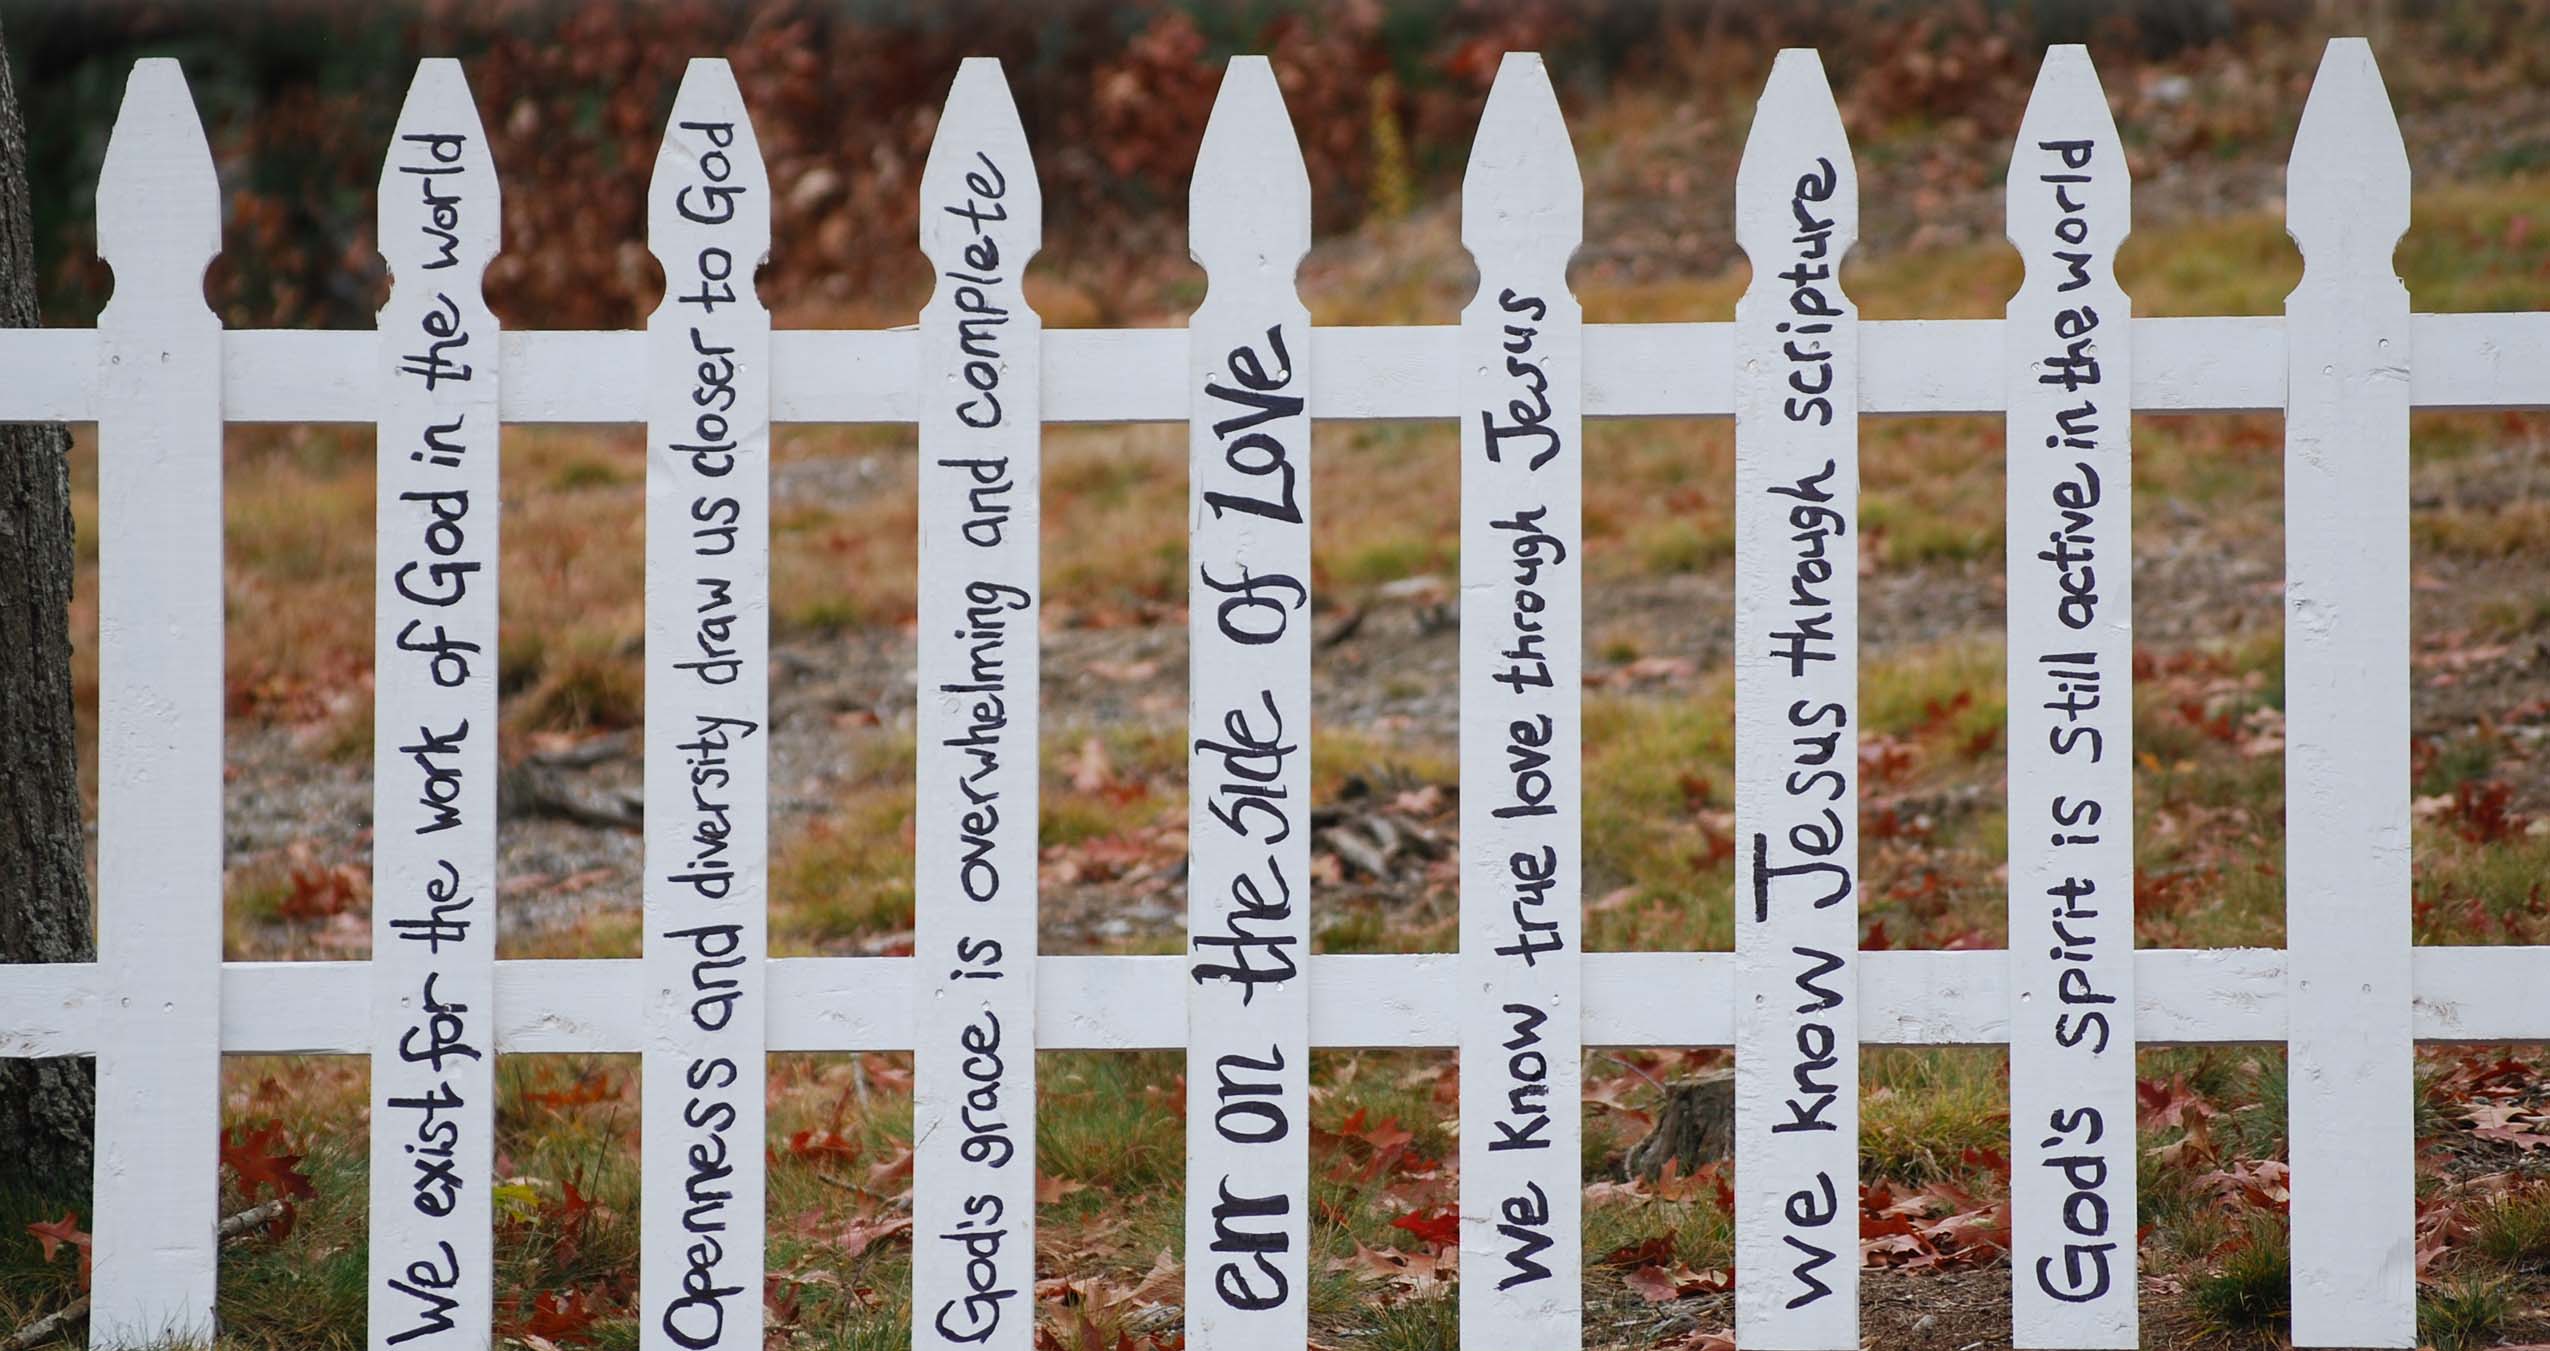 We exist for the work of God in the world
Openness and diversity draw us closer to God
God's grace is overwhelming and complete
err on the side of Love
We Know true love through Jesus
We know Jesus through scripture
God's spirit is still active in the world